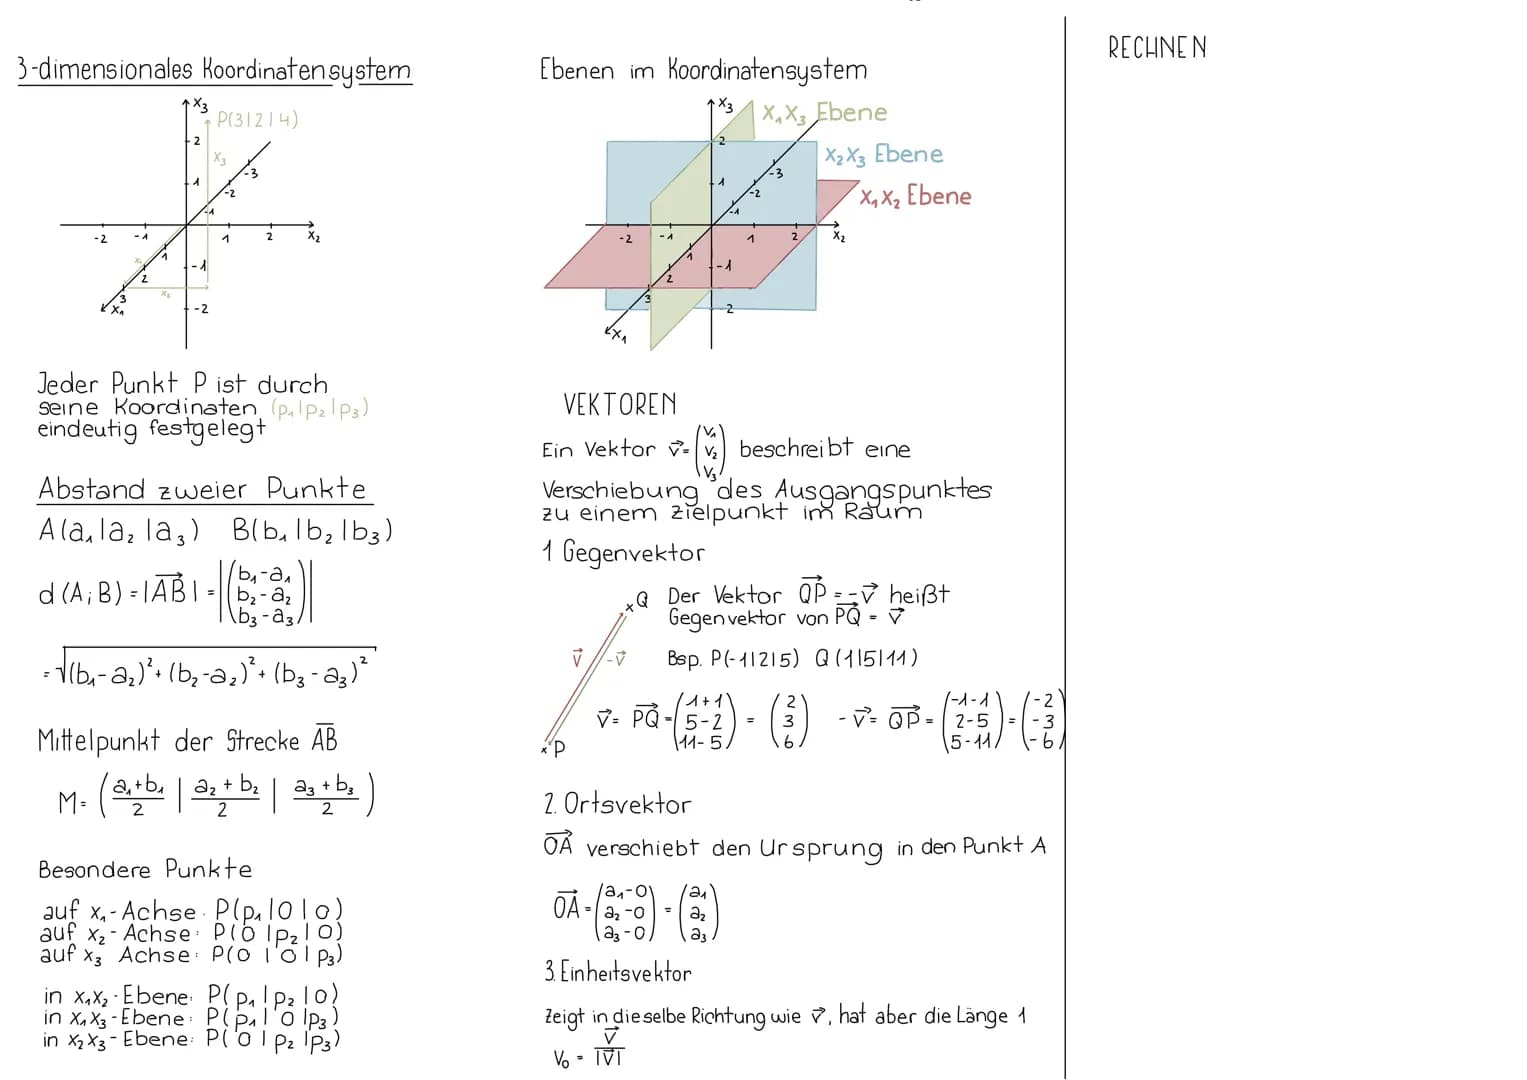 3-dimensionales Koordinatensystem
x₃
P(3|2|4)
2
x₃
-3
1
-2
-1
-2 -1 1 2 x₂
1
-1
2
3
x₁
-2
Jeder Punkt P ist durch
seine Koordinaten (p₁|p₂|p₃)
eindeutig festgelegt
Abstand zweier Punkte
A(a₁|a₂|a₃) B(b₁|b₂|b₃)
d(A;B) = |A⃗B⃗| = |(b₁-a₁
b₂-a₂
b₃-a₃)|
= √(b₁-a₂)² + (b₂-a₂)² + (b₃-a₃)²
Mittelpunkt der Strecke A̅B̅
M = (a₁+b₁/2 | a₂+b₂/2 | a₃+b₃/2)
Besondere Punkte
auf x₁-Achse: P(p₁|0|0)
auf x₂-Achse: P(0|p₂|0)
auf x₃ Achse: P(0|0|p₃)
in x₁x₂-Ebene: P(p₁|p₂|0)
in x₁x₃-Ebene: P(p₁|0|p₃)
in x₂x₃-Ebene: P(0|p₂|p₃)
Ebenen im Koordinatensystem
x₃ x₁x₃ Ebene
2
x₂x₃ Ebene
-3
1
-2
x₁x₂ Ebene
-1
-2 -1 1 2 x₂
1
-1
2
3
-2
x₁
VEKTOREN
Ein Vektor v⃗ = (v₁ v₂ v₃) beschreibt eine
Verschiebung des Ausgangspunktes
zu einem Zielpunkt im Raum
1 Gegenvektor
Q
Der Vektor Q⃗P⃗ = -v⃗ heißt
Gegenvektor von P⃗Q⃗ = v⃗
v⃗ -v⃗
Bsp. P(-1|2|5) Q(1|5|11)
v⃗ = P⃗Q⃗ = (1+1 5-2 11-5) = (2 3 6) -v⃗ = Q⃗P⃗ = (-1-1 2-5 5-11) = (-2 -3 -6)
P
2. Ortsvektor
O⃗A⃗ verschiebt den Ursprung in den Punkt A
O⃗A⃗ = (a₁-0 a₂-0 a₃-0) = (a₁ a₂ a₃)
3. Einheitsvektor
Zeigt in dieselbe Richtung wie v⃗, hat aber die Länge 1
v₀ = v⃗/|v⃗|
RECHNEN